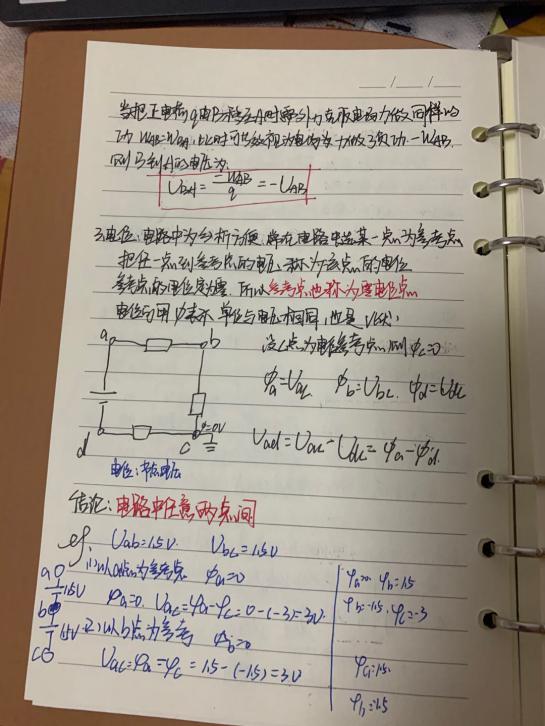 当把正电荷q由B移至A时需外力克服电场力做同样的
功 WAB=WBA,此时可等效视为电场力做了负功-WAB,
则B到A的电压为:
UBA = -WAB/q = -UAB
3、电位:电路中为分析方便,常在电路中选某一点为参考点
把任一点到参考点的电压称为该点的电位
参考点的电位为零,所以参考点也称为零电位点
电位用φ表示,单位与电压相同,也是V(伏)
a b
设c点为电位参考点,则 φc=0
φa=Uac φb=Ubc φd=Udc
φ=0V
d c
Uad=Uac-Udc=φa-φd
电位:节点电压
结论:电路中任意两点间
eg. Uab=1.5V Ubc=1.5V
(1)以a点为参考点 φa=0
a 1.5V
φa=0. Uac=φa-φc=0-(-3)=3V
b
1.5V (2)以b点为参考 φb=0
c
Uac=φa-φc=1.5-(-1.5)=3V
φa=0 φb=1.5
φb=-1.5, φc=-3
φa=1.5
φb=1.5